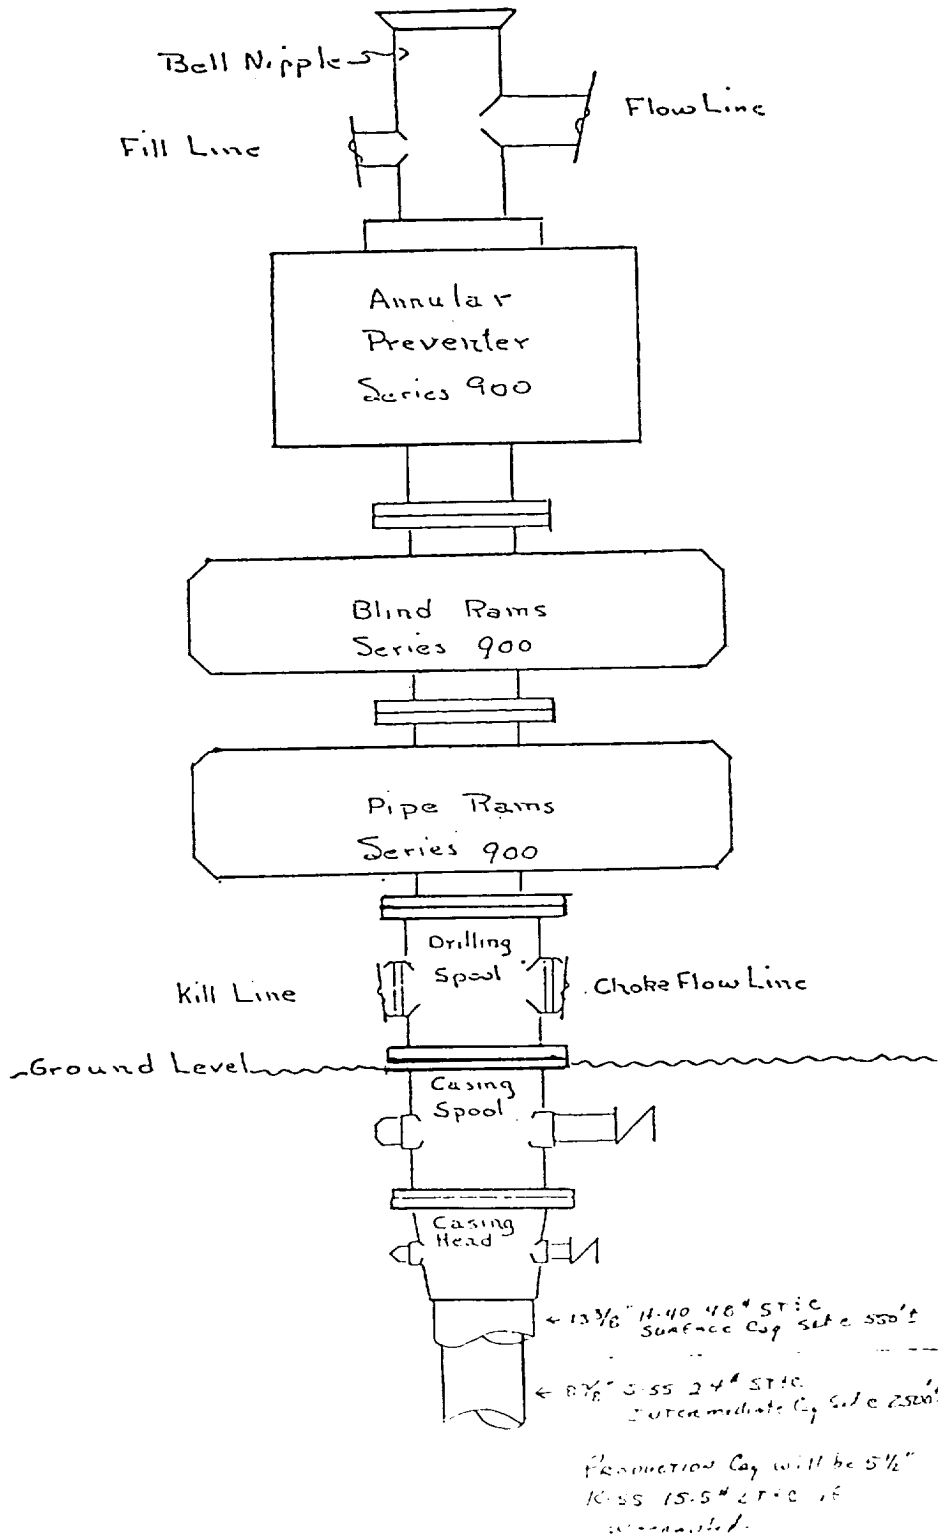 Bell Nipple
Flow Line
Fill Line
Annular
Preventer
Series 900
Blind Rams
Series 900
Pipe Rams
Series 900
Drilling
Spool
Kill Line
Choke Flow Line
Ground Level
Casing
Spool
Casing
Head
← 13 3/8" H-40 48# ST&C
Surface Csg Set @ 550'±
← 8 5/8" J-55 24# ST&C
Intermediate Csg Set @ 2500'±
Production Csg will be 5 1/2"
K-55 15.5# LT&C if